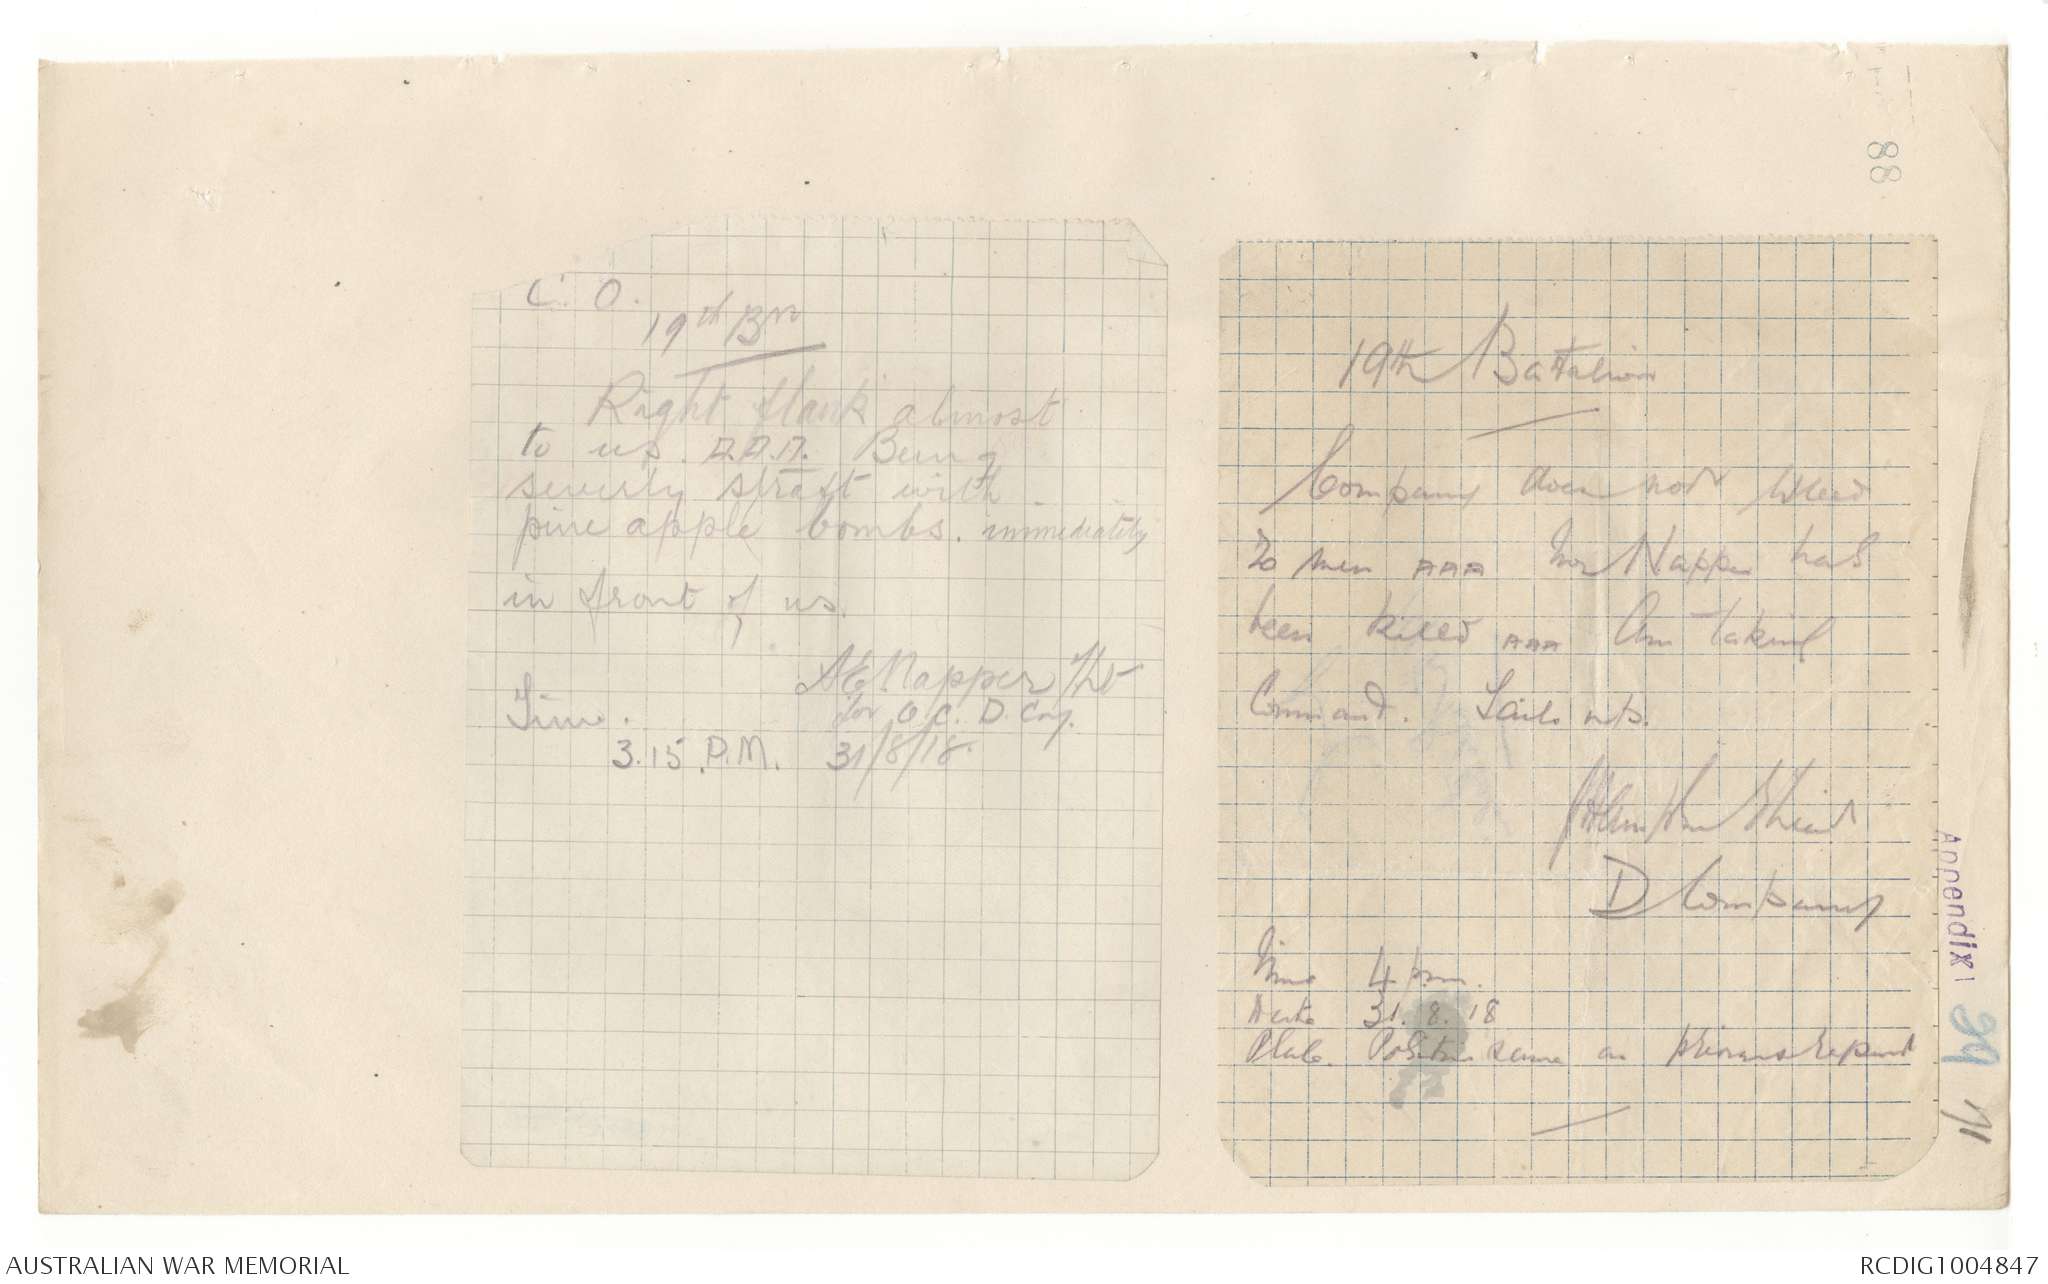 C. O.
19th Bn
Right flank almost
to us. A.A.A. Being
severly straft with
pine apple bombs. immediately
in front of us.
Napper Lt
for O. C. D. Coy.
Time.
3.15. P.M. 31/8/18.
88
19th Battalion
Company does not exceed
20 men AAA Mr Napper has
been killed AAA Am taking
Command.
D Company
Time 4 pm.
Date 31. 8. 18
Place. Position same as previous report
Appendix 29
71
AUSTRALIAN WAR MEMORIAL
RCDIG1004847